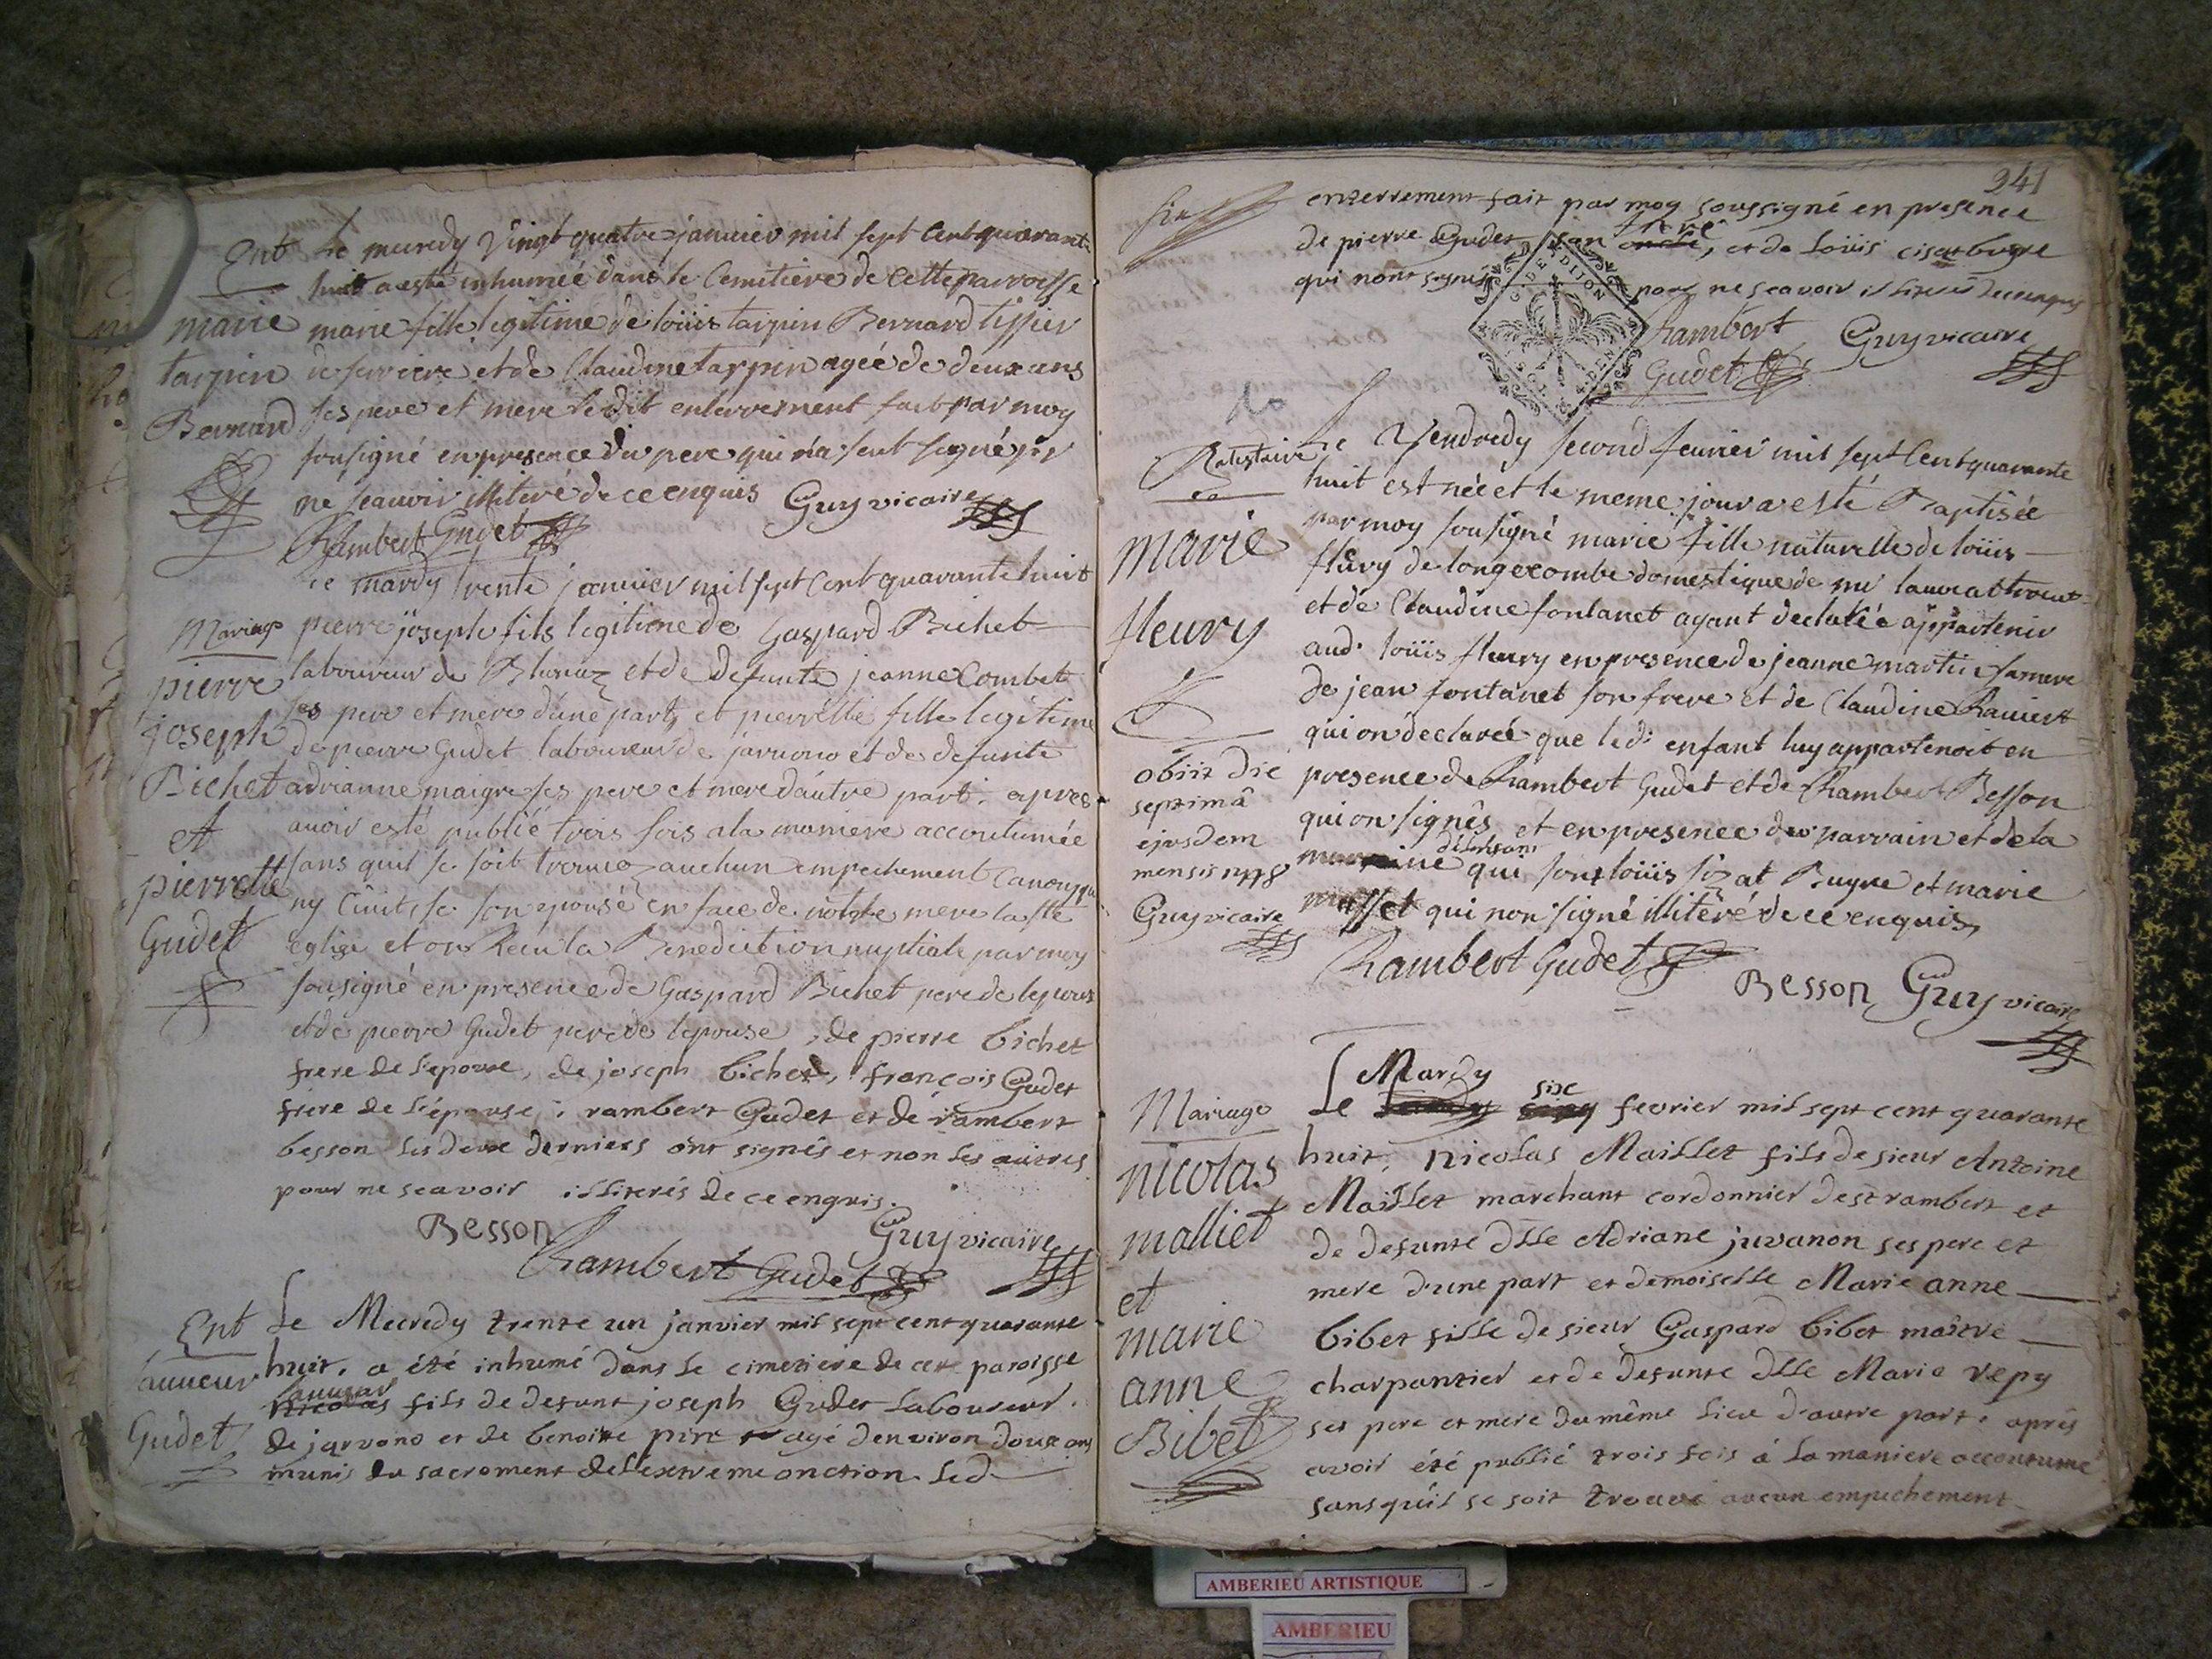 Ent
marie
tarpin
Bernard
le mecredy Vingt quatre janvier mil sept Cent quarante
huit a esté inhumée dans le Cemitiere de Cette parroisse
marie fille legitime de loüis tarpin Bernard tissier
et de Claudine tarpin agée de deux ans
ses pere et mere ledit enterrement fait par moy
sousigné en presence du pere qui n'a seut signé pr
ne sçauoir illiteré de ce enquis Guy vicaire
Rambert Gudet
Mariage
pierre
joseph
Bichet
et
pierrette
Gudet
le mardy trente janvier mil sept Cent quarante huit
pierre joseph fils legitime de Gaspard Bichet
laboureur de et de defunte jeanne Combet
ses pere et mere d'une part, et pierrette fille legitime
de pierre Gudet laboureur de et de defunte
adrianne maigre ses pere et mere d'autre part. apres
auoir esté publié trois fois a la maniere accoutumée
sans quil se soit trouué auchun empechement Canonique
ny Ciuil, se son epousé en face de notre mere la ste
Eglise et on Recu la Benediction nuptiale par moy
sousigné en presence de Gaspard Bichet pere de lepoux
et de pierre Gudet pere de lepouse, de pierre bichet
frere de l'epoux, de joseph bichet, françois Gudet
frere de l'épouse, rambert Gudet et de rambert
besson les deux derniers ont signés et non les autres
pour ne scavoir illiterés de ce enquis.
Besson Guy vicaire
Rambert Gudet
Ent
Gudet
Le Mecredy trente un janvier mil sept cent quarante
huit. a été inhumé dans le cimetiere de cete paroisse
fils de defunt joseph Gudet laboureur
de et de benoite agé denviron douze ans
munis du sacrement de l'extreme onction. led
241
enterrement fait par moy soussigné en presence
de pierre Gudet son frere, et de loüis
qui nont signés pour ne scavoir illiterés de ce enquis
G. DE DIJON
Rambert Guy vicaire
Gudet
marie
fleury
obiit die
septimâ
ejusdem
mensis 1748
Guy vicaire
le Vendredy second feurier mil sept Cent quarante
huit est née et le meme jour a esté Baptisée
par moy sousigné marie fille naturelle de loüis
fleury de longecombe domestique de mr
et de Claudine fontanet ayant declarée appartenir
aud. loüis fleury en presence de jeanne sa mere
de jean fontanet son frere et de Claudine
qui on declaré que led. enfant luy appartenoit en
presence de Rambert Gudet et de Rambert Besson
qui on signés et en presence du parrain et de la
qui sont loüis et marie
qui non signé illiteré de ce enquis
Rambert Gudet
Besson Guy vicaire
Mariage
nicolas
malliet
et
marie
anne
Bibet
Le Mardy six fevrier mil sept cent quarante
huit, nicolas Maillet fils de sieur Antoine
Maillet marchant cordonnier de st rambert et
de defunte dlle Adriane juvanon ses pere et
mere d'une part et demoiselle Marie anne
bibet fille de sieur Gaspard bibet maitre
charpantier et de defunte dlle Marie repy
ses pere et mere du même lieu d'autre part. aprés
avoir été publié trois fois á la maniere accoutumé
sans qu'il se soit trouvé aucun empechement
AMBERIEU ARTISTIQUE
AMBERIEU